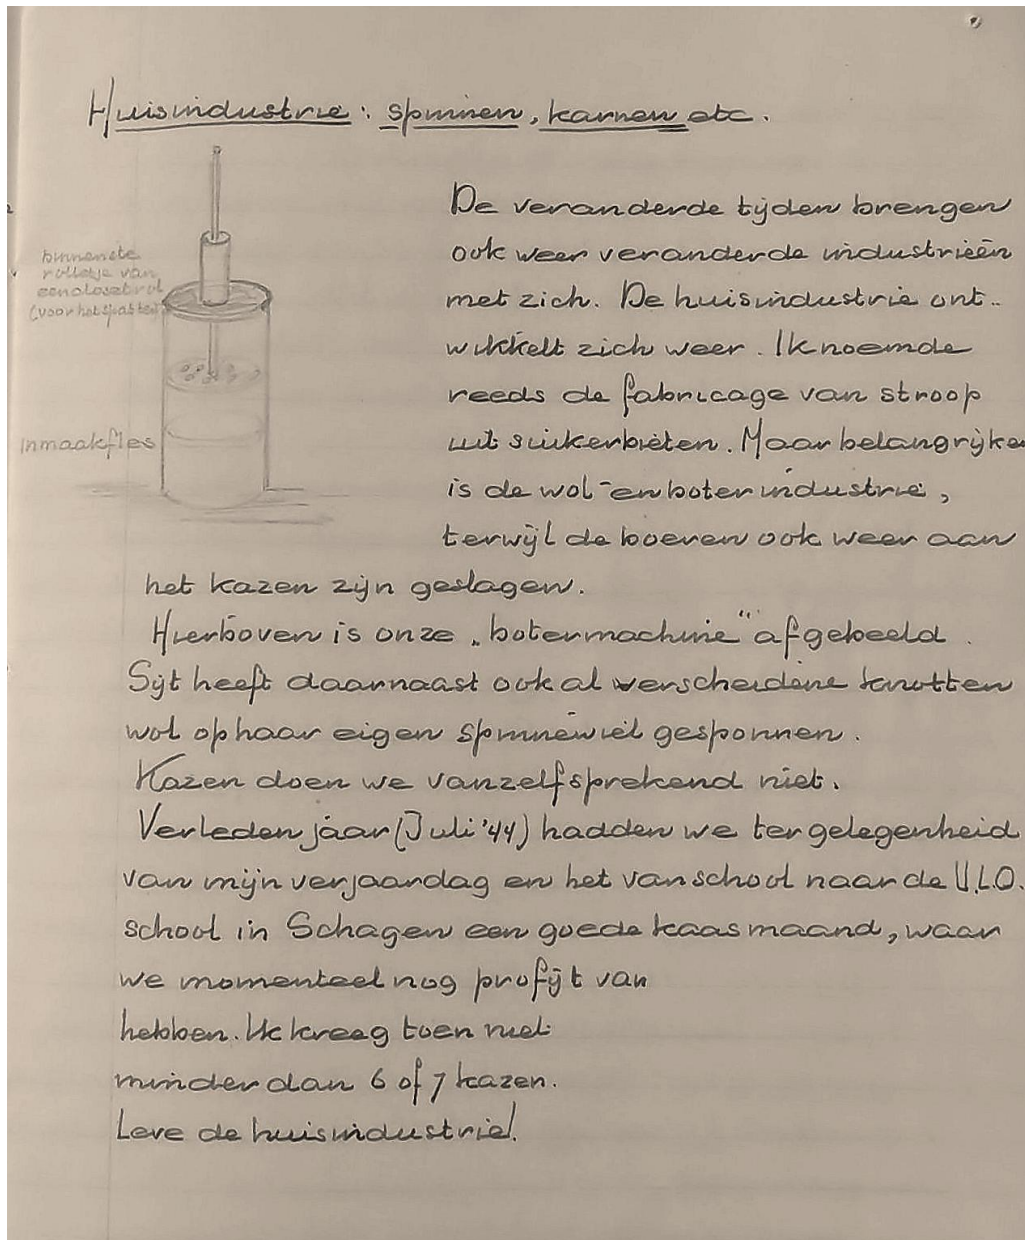 Huisindustrie: spinnen, karnen etc.
binnenste
rolletje van
een closetrol
(voor het spatten)
inmaakfles
De veranderde tijden brengen
ook weer veranderde industrieën
met zich. De huisindustrie ont-
wikkelt zich weer. Ik noemde
reeds de fabricage van stroop
uit suikerbieten. Maar belangrijker
is de wol- en boterindustrie,
terwijl de boeren ook weer aan
het kazen zijn geslagen.
Hierboven is onze „botermachine" afgebeeld.
Sijt heeft daarnaast ook al verscheidene knotten
wol op haar eigen spinnewiel gesponnen.
Kazen doen we vanzelfsprekend niet.
Verleden jaar (Juli '44) hadden we ter gelegenheid
van mijn verjaardag en het van school naar de U.L.O.
school in Schagen een goede kaasmaand, waar
we momenteel nog profijt van
hebben. Ik kreeg toen niet
minder dan 6 of 7 kazen.
Leve de huisindustrie!